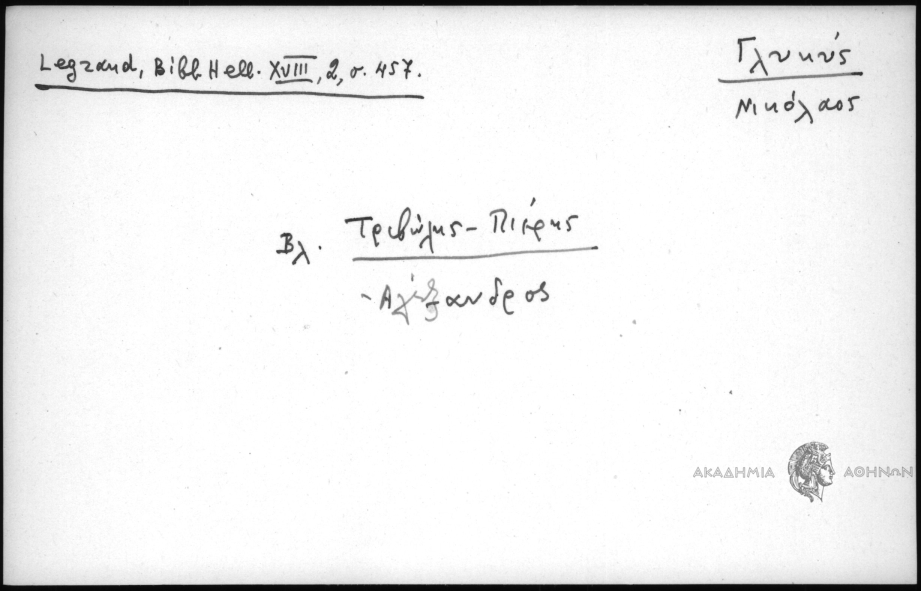 Legrand, Bibl. Hell. XVIII, 2, σ. 457.
Γλυκύς
Νικόλαος
Βλ. Τριβώλης - Πιέρης
- Αλέξανδρος
ΑΚΑΔΗΜΙΑ ΑΘΗΝΩΝ